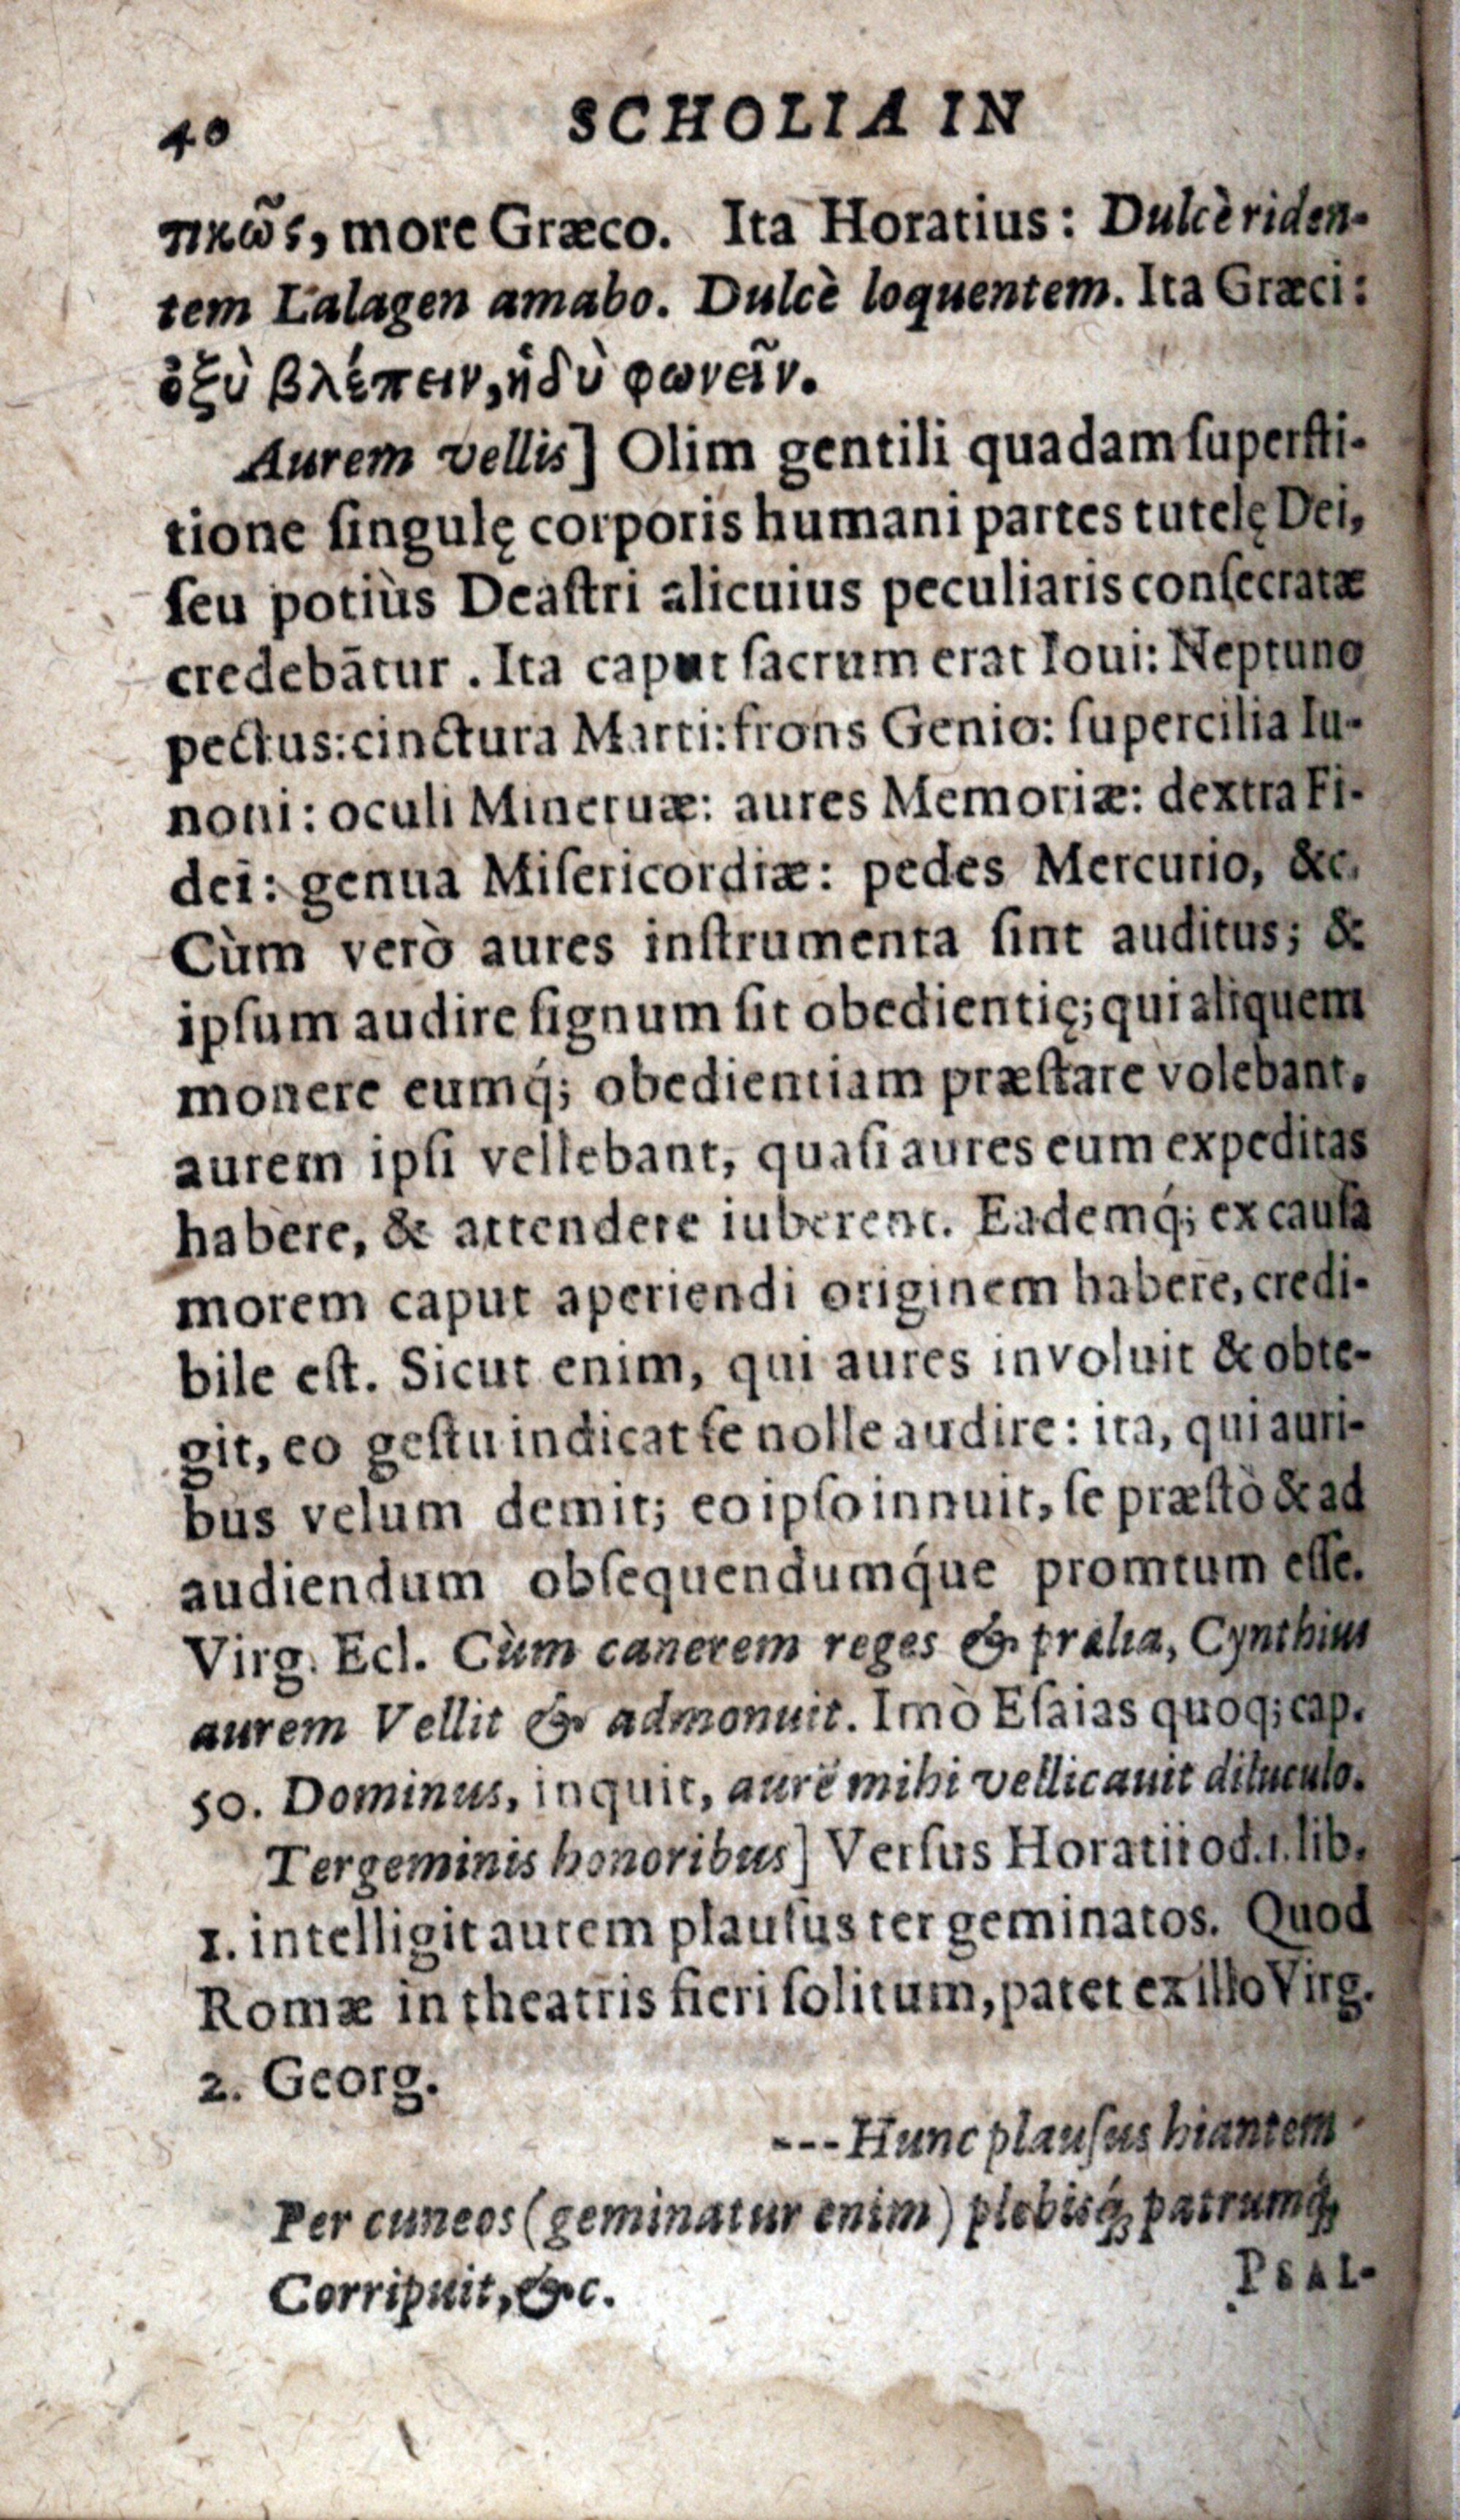 40 SCHOLIA IN
πικῶς, more Græco. Ita Horatius: Dulcè riden-
tem Lalagen amabo. Dulcè loquentem. Ita Græci:
ὀξὺ βλέπειν, ἡδὺ φωνεῖν.
Aurem vellis] Olim gentili quadam ſuperſti-
tione ſingulę corporis humani partes tutelę Dei,
ſeu potiùs Deaſtri alicuius peculiaris conſecratæ
credebātur. Ita caput ſacrum erat Ioui: Neptuno
pectus: cinctura Marti: frons Genio: ſupercilia Iu-
noni: oculi Mineruæ: aures Memoriæ: dextra Fi-
dei: genua Miſericordiæ: pedes Mercurio, &c.
Cùm verò aures inſtrumenta ſint auditus; &
ipſum audire ſignum ſit obedientię; qui aliquem
monere eumq́; obedientiam præſtare volebant,
aurem ipſi vellebant, quaſi aures eum expeditas
habere, & attendere iuberent. Eademq́; ex cauſa
morem caput aperiendi originem habere, credi-
bile eſt. Sicut enim, qui aures involuit & obte-
git, eo geſtu indicat ſe nolle audire: ita, qui auri-
bus velum demit; eo ipſo innuit, ſe præſtò & ad
audiendum obſequendumq́ue promtum eſſe.
Virg. Ecl. Cùm canerem reges & prælia, Cynthius
aurem Vellit & admonuit. Imò Eſaias quoq; cap.
50. Dominus, inquit, aurē mihi vellicauit diluculo.
Tergeminis honoribus] Verſus Horatii od. 1. lib.
1. intelligit autem plauſus ter geminatos. Quod
Romæ in theatris fieri ſolitum, patet ex illo Virg.
2. Georg.
--- Hunc plauſus hiantem
Per cuneos (geminatur enim) plebisq́; patrumq́;
Corripuit, &c.
PSAL-